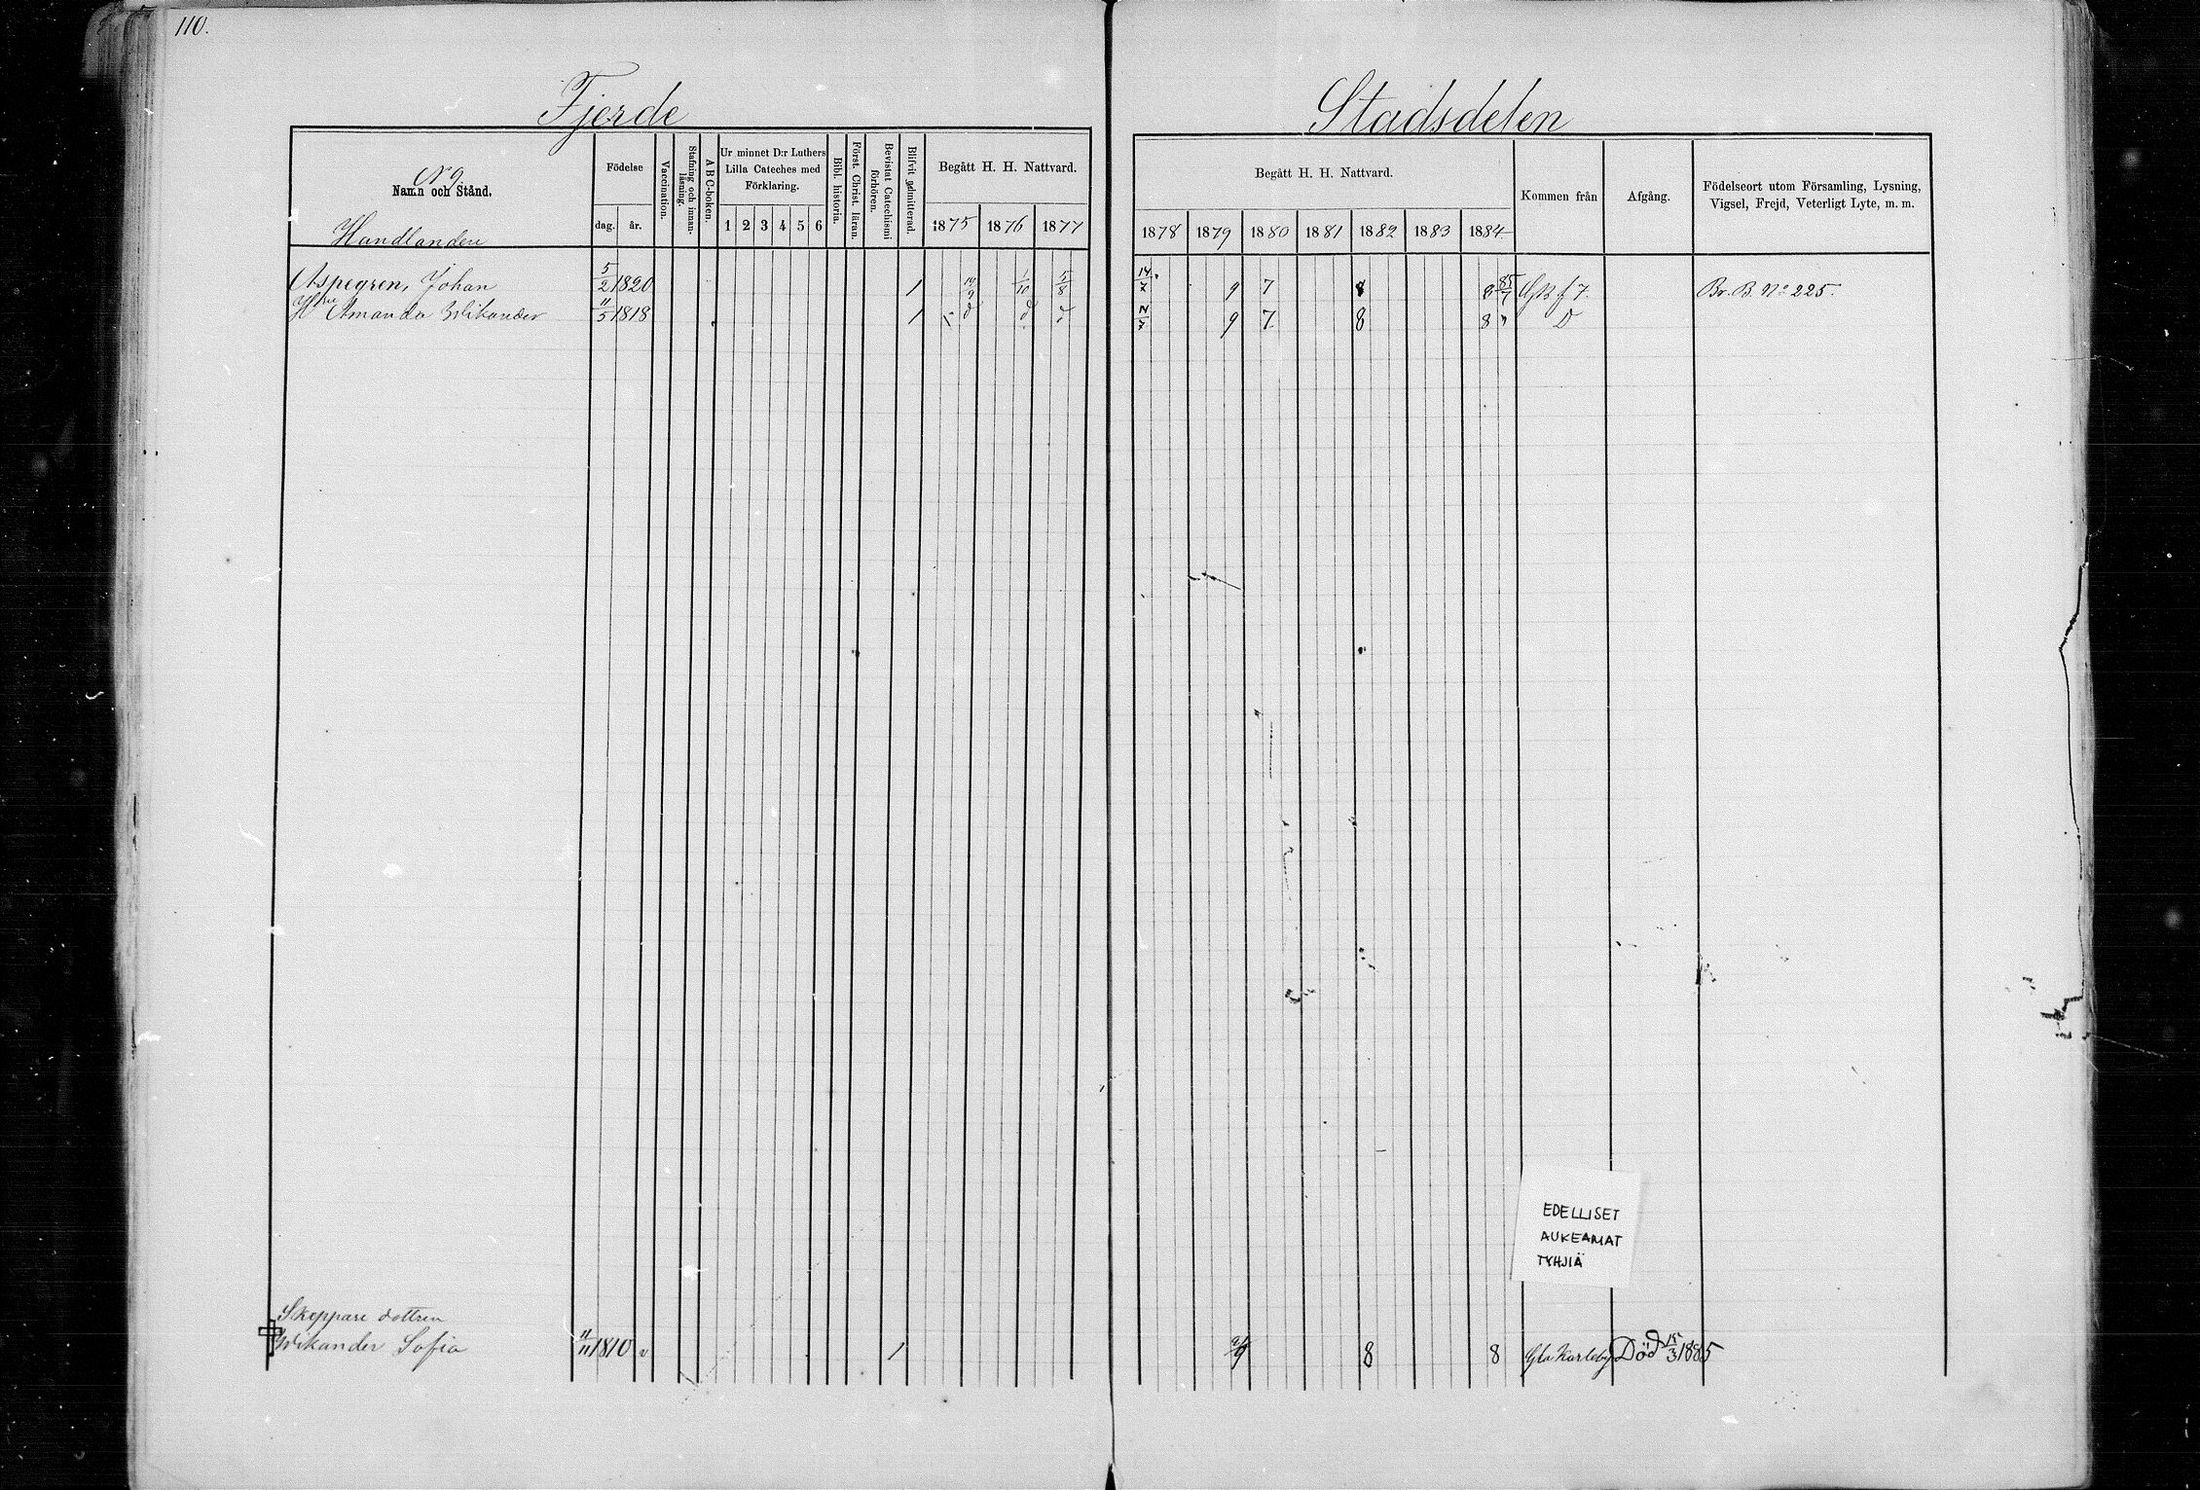 110.
Fjerde Stadsdelen
Nº 9
Namn och Stånd.
Handlanden
Födelse
dag. år.
Vaccination.
Stafning och innanläsning.
A B C-boken.
Ur minnet D:r Luthers
Lilla Cateches med
Förklaring.
1 2 3 4 5 6
Bibl. historia.
Först. Christ. läran.
Bevistat Catechismi förhören.
Blifvit admitterad.
Begått H. H. Nattvard.
1875 1876 1877
Begått H. H. Nattvard.
1878 1879 1880 1881 1882 1883 1884
Kommen från
Afgång.
Födelseort utom Församling, Lysning,
Vigsel, Frejd, Veterligt Lyte, m. m.
Aspegren, Johan 5/2 1820 1 19/9 1/10 5/8 14/7 9 7 8 8 85/7 Br. B. Nº 225.
Hru Amanda Wikander 11/5 1818 1 9 7 8 8 D
EDELLISET
AUKEAMAT
TYHJIÄ
Skeppare dottren
Wikander Sofia 11/11 1810 v 1 8 8 Gla Karleby Död 15/3 1885